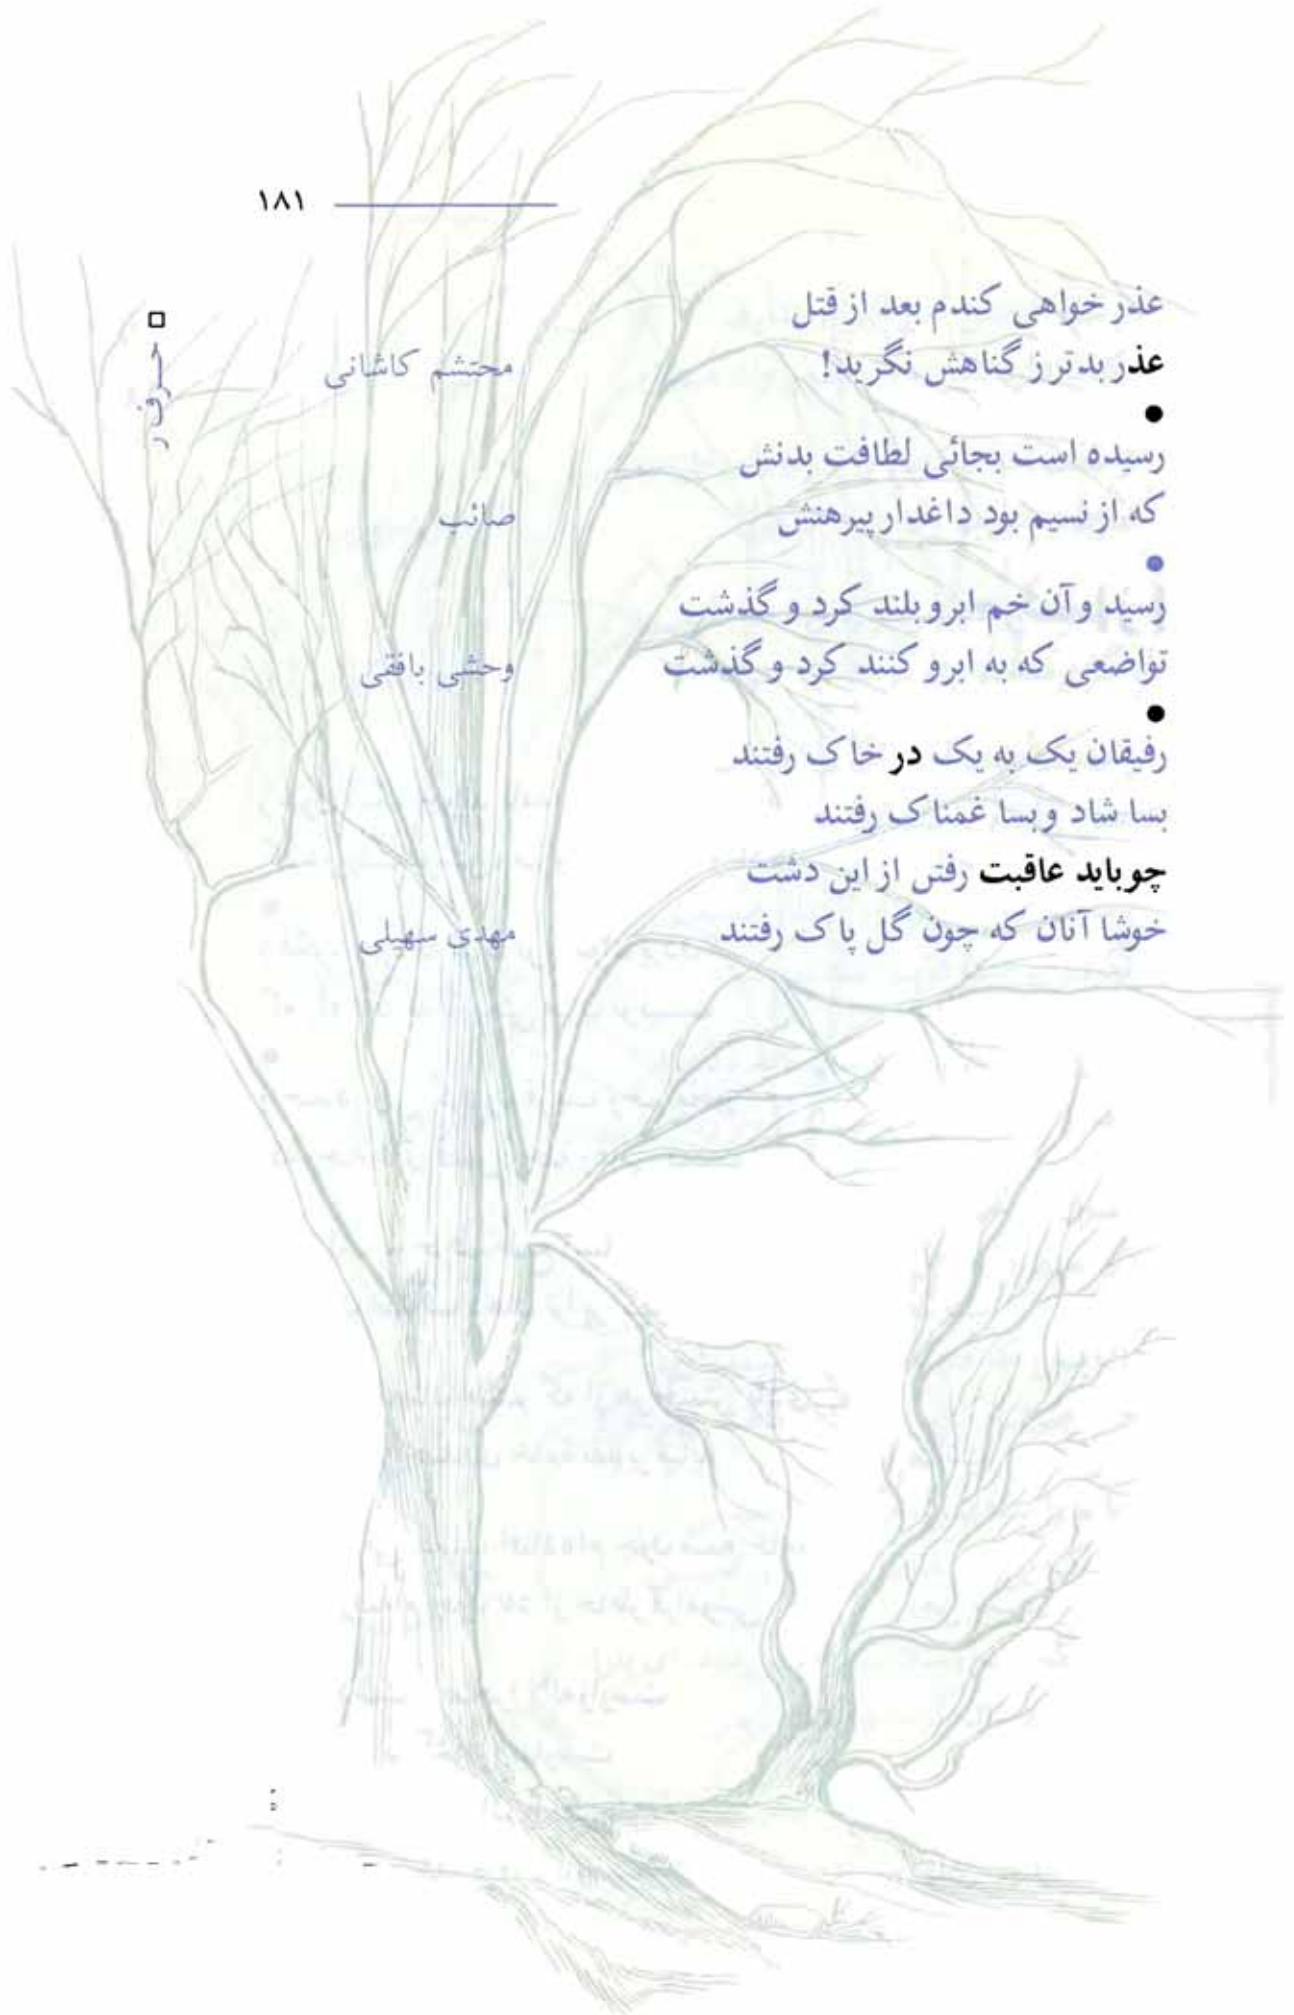 ۱۸۱
□ حرف ر
عذر خواهی کندم بعد از قتل
عذر بدتر ز گناهش نگرید!
محتشم کاشانی
●
رسیده است بجائی لطافت بدنش
که از نسیم بود داغدار پیرهنش
صائب
●
رسید و آن خم ابرو بلند کرد و گذشت
تواضعی که به ابرو کنند کرد و گذشت
وحشی بافقی
●
رفیقان یک به یک در خاک رفتند
بسا شاد و بسا غمناک رفتند
چو باید عاقبت رفتن از این دشت
خوشا آنان که چون گل پاک رفتند
مهدی سهیلی